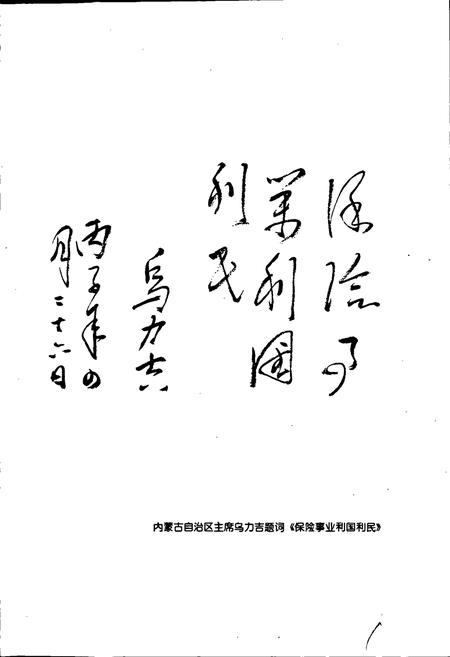 保险事
業利國
利民
乌力吉
丙子年四
月二十六日
内蒙古自治区主席乌力吉题词《保险事业利国利民》